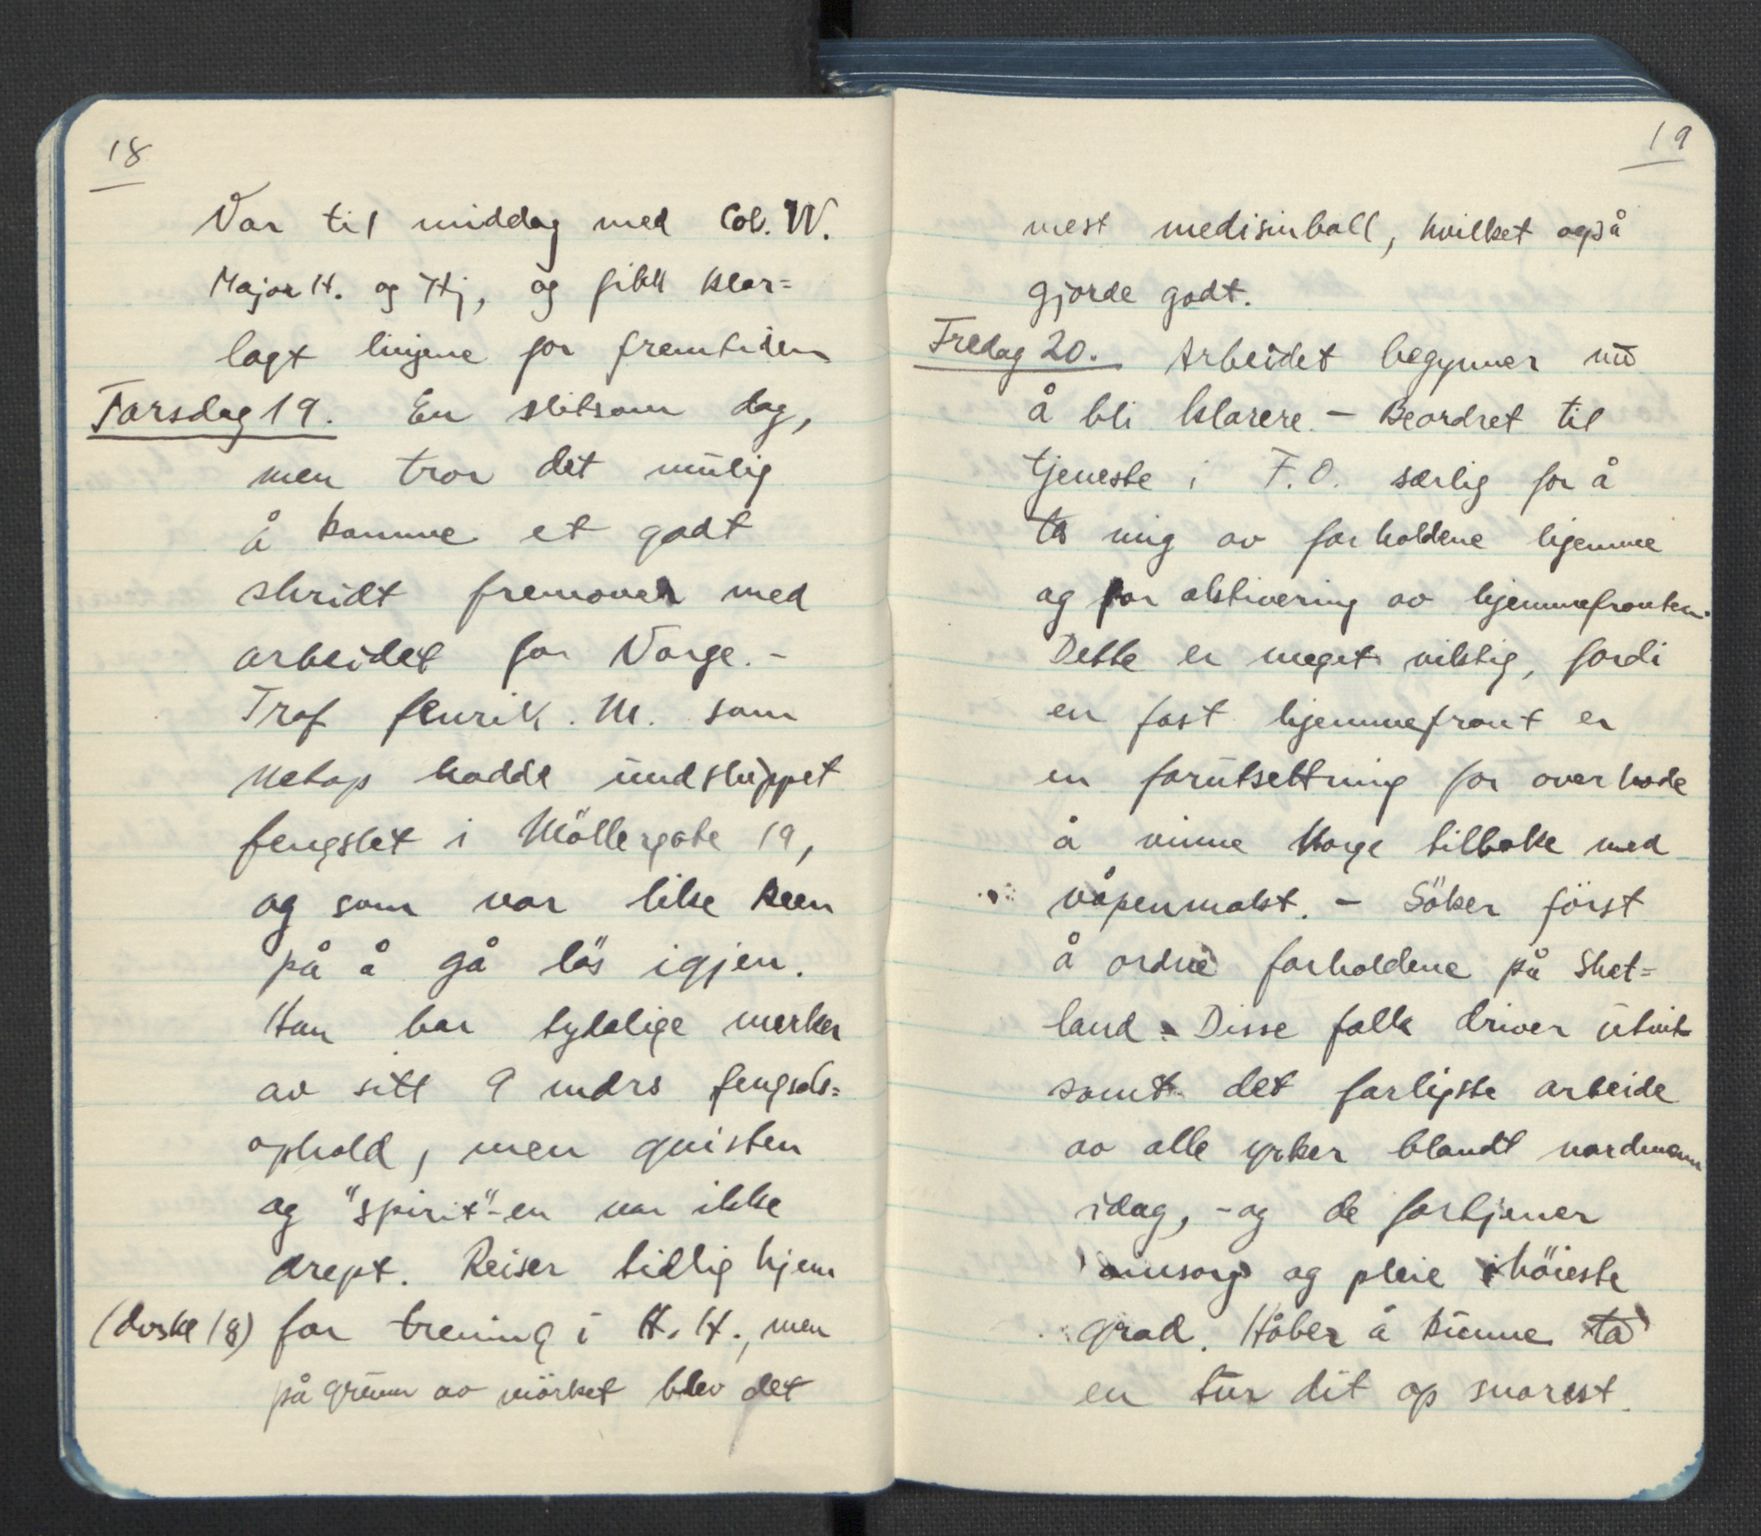 18
Var til middag med Col. W.
Major H. og Hj, og fikk klar=
lagt linjene for fremtiden
Torsdag 19. En slitsom dag,
men tror det mulig
å komme et godt
skridt fremover med
arbeidet for Norge. -
Traf Henrik. M. som
netop hadde undsluppet
fengslet i Möllergate 19,
og som var like keen
på å gå lös igjen.
Han bar tydelige merker
av sitt 9 mdrs fengsels=
ophold, men gnisten
og "spirit"-en var ikke
drept. Reiser tidlig hjem
(duske 18) for trening i H. H., men
på grunn av mörket blev det
19
mest medisinball, hvilket også
gjorde godt.
Fredag 20. Arbeidet begynner nu
å bli klarere - Beordret til
tjeneste i F.O. særlig for å
ta mig av forholdene hjemme
og for aktivering av hjemmefronten.
Dette er meget viktig, fordi
en fast hjemmefront er
en forutsettning for overhode
å vinne Norge tilbake med
våpenmakt. - Söker först
å ordne forholdene på Shet=
land. Disse folk driver utvil
somt det farligste arbeide
av alle yrker blandt nordmenn
idag, - og de fortjener
omsorg og pleie i höieste
grad. Håber å kunne ta
en tur dit op snarest.